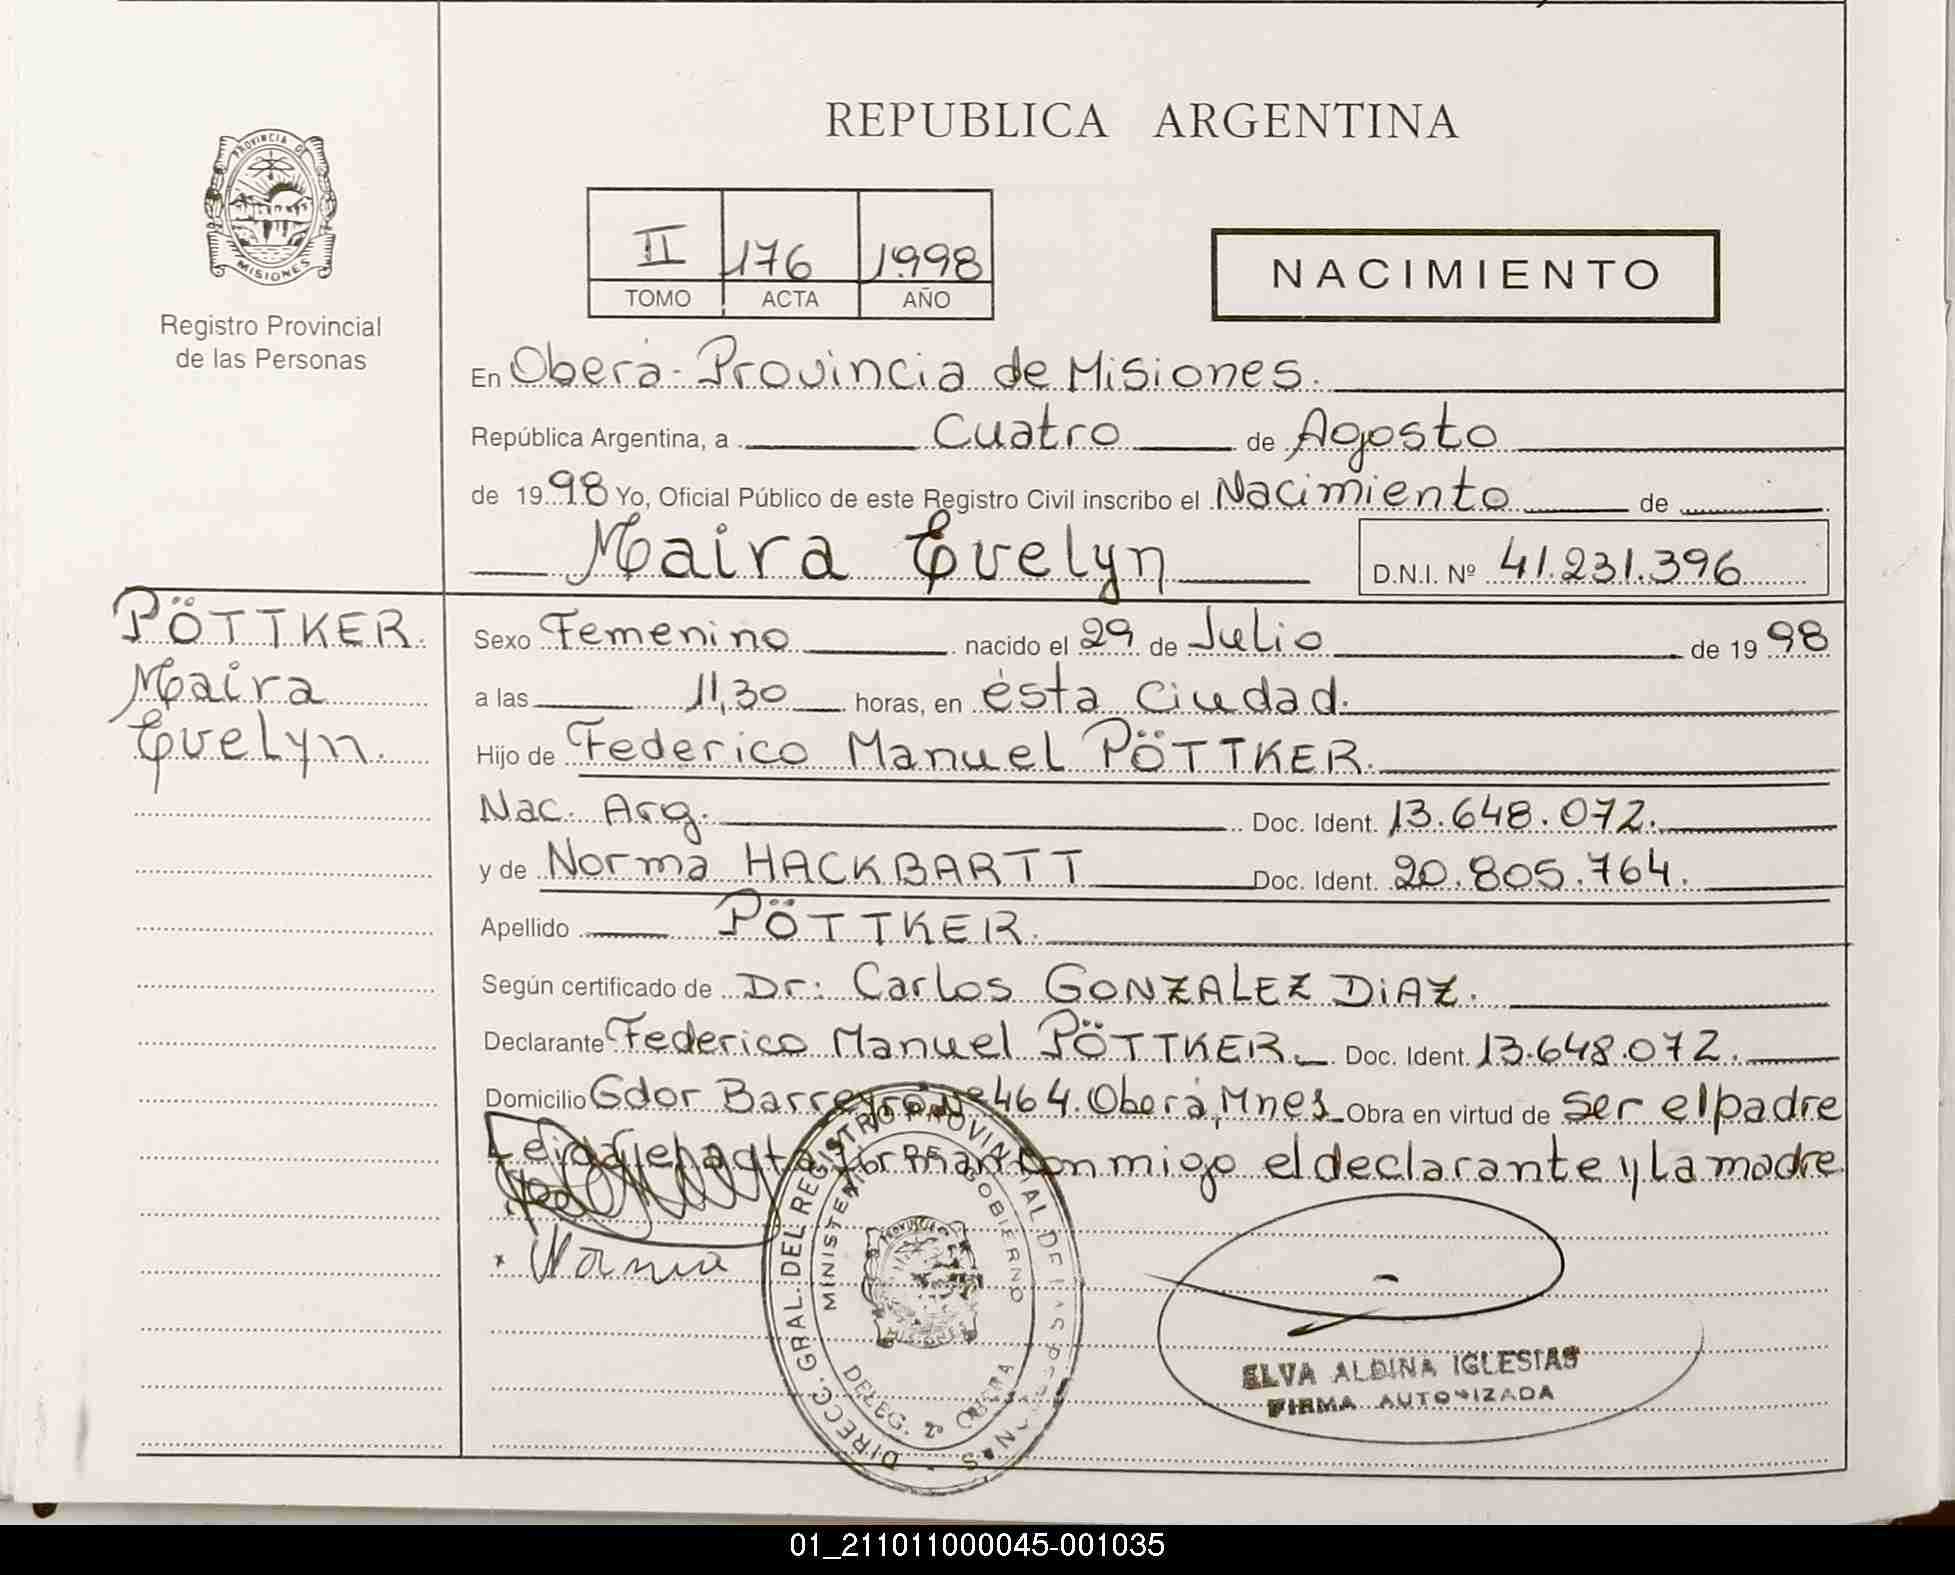 REPUBLICA ARGENTINA
PROVINCIA DE
MISIONES
Registro Provincial
de las Personas
II 176 1998
TOMO ACTA AÑO
NACIMIENTO
En Oberá- Provincia de Misiones.
República Argentina, a Cuatro de Agosto
de 1998 Yo, Oficial Público de este Registro Civil inscribo el Nacimiento de
Maira Evelyn D.N.I. Nº 41.231.396
PÖTTKER.
Maira
Evelyn.
Sexo Femenino nacido el 29 de Julio de 1998
a las 11,30 horas, en ésta Ciudad.
Hijo de Federico Manuel PÖTTKER.
Nac. Arg. Doc. Ident. 13.648.072.
y de Norma HACKBARTT Doc. Ident. 20.805.764.
Apellido PÖTTKER.
Según certificado de Dr: Carlos GONZALEZ DiAZ.
Declarante Federico Manuel PÖTTKER Doc. Ident. 13.648.072.
Domicilio Gdor Barreyro Nº 464. Oberá, Mnes Obra en virtud de ser el padre
Leida el acta firman conmigo el declarante y La madre
DIRECC. GRAL. DEL REGISTRO PROVINCIAL DE LAS PERSONAS
MINISTERIO DE GOBIERNO
PROVINCIA
MISIONES
DELEG. 2 OBERA
ELVA ALBINA IGLESIAS
FIRMA AUTORIZADA
01_211011000045-001035